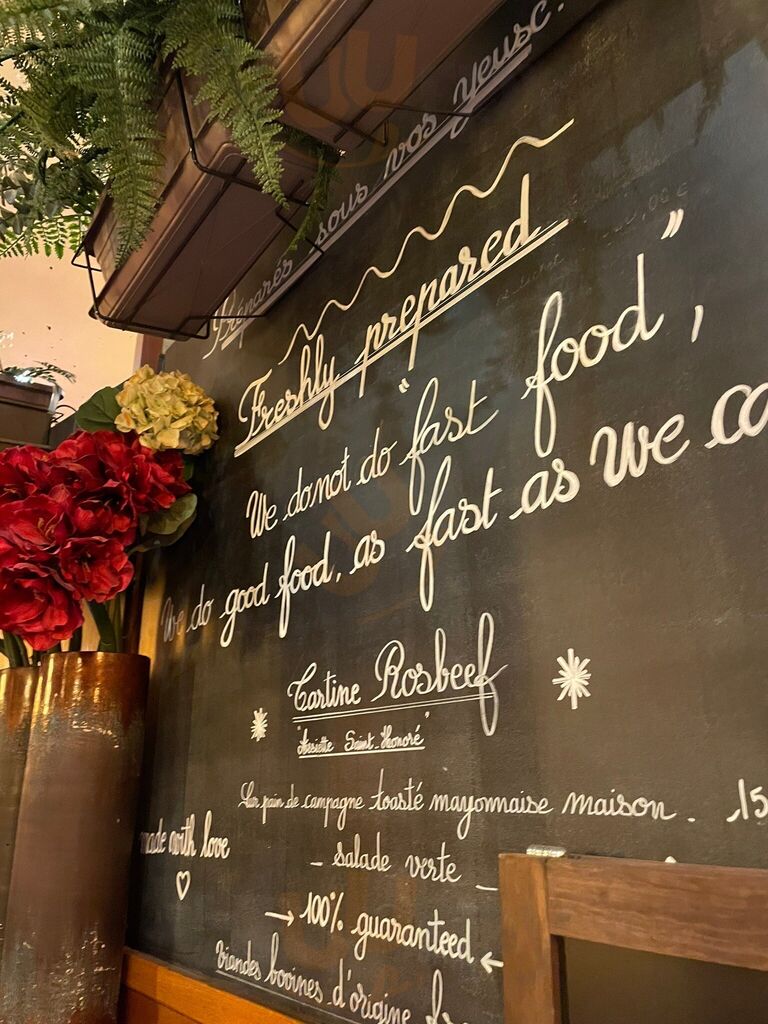 Préparés sous vos yeux.
Freshly prepared
We do not do "fast food",
We do good food, as fast as we ca
Tartine Rosbeef
"Assiette Saint-Honoré"
Sur pain de campagne toasté mayonnaise maison. 15
made with love
- Salade verte -
→ 100% guaranteed ←
Viandes bovines d'origine fr